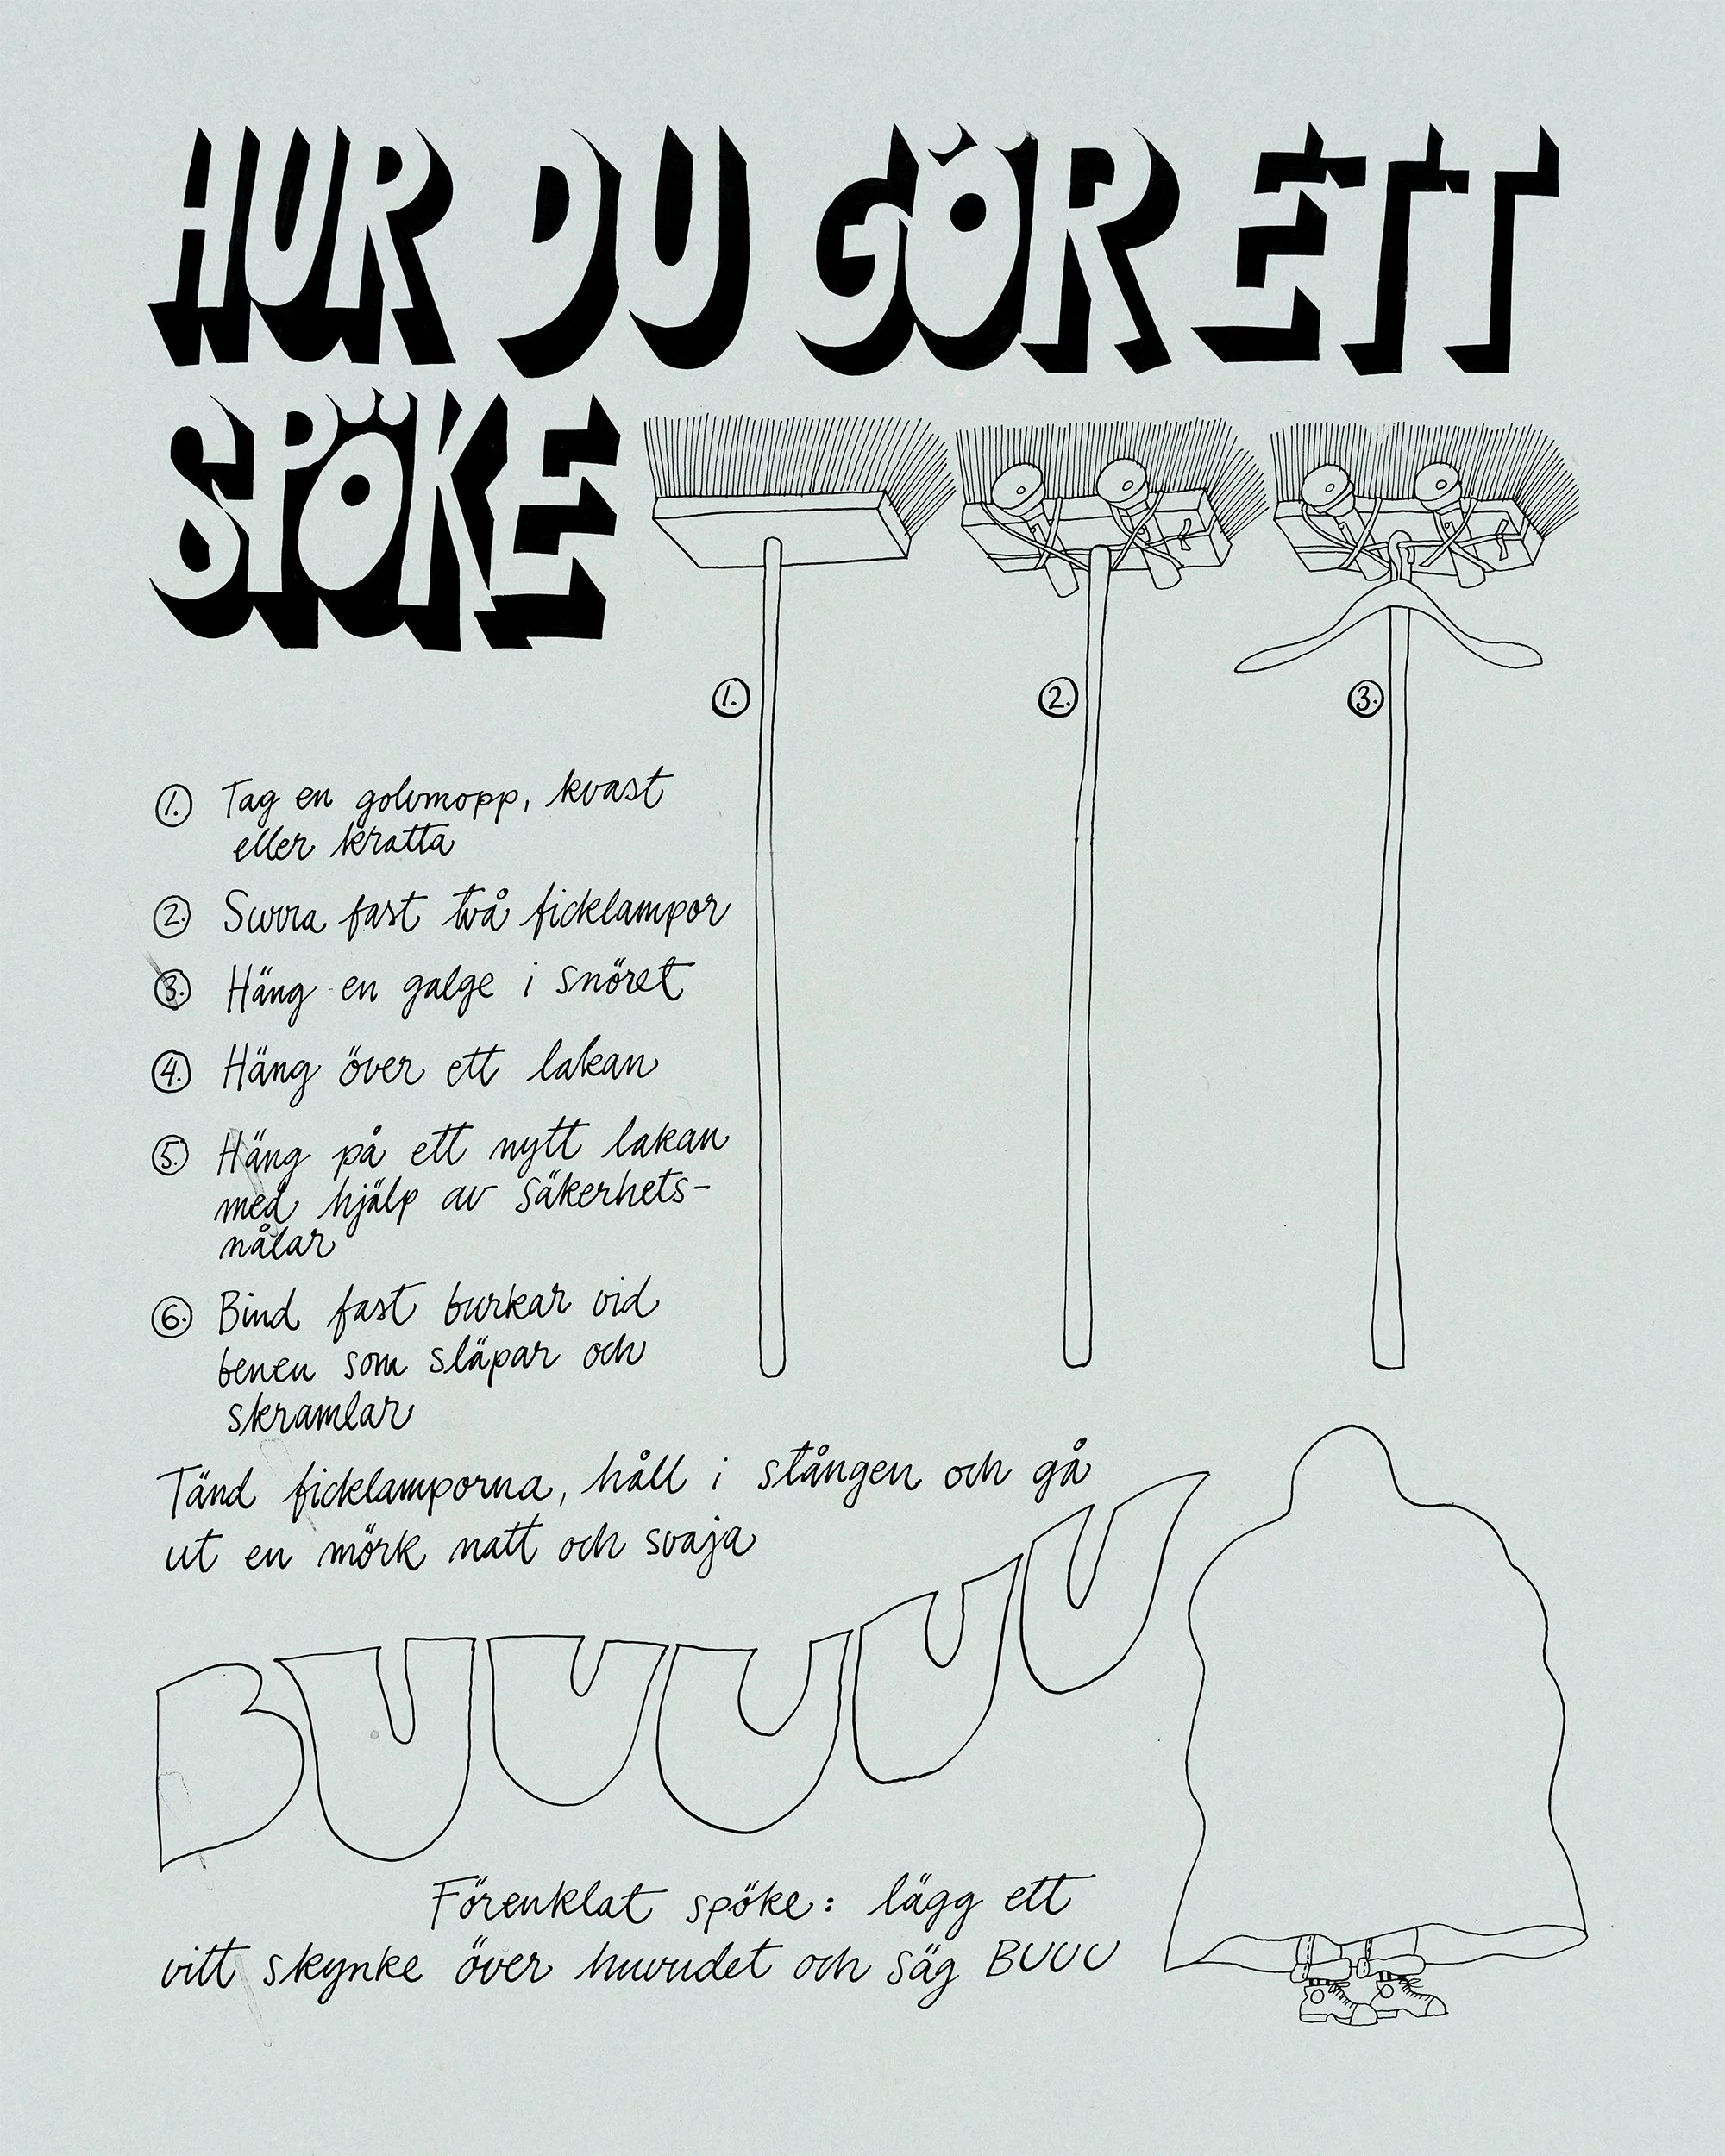 HUR DU GÖR ETT
SPÖKE
1.
2.
3.
1. Tag en golvmopp, kvast
eller kratta
2. Surra fast två ficklampor
3. Häng en galge i snöret
4. Häng över ett lakan
5. Häng på ett nytt lakan
med hjälp av säkerhets-
nålar
6. Bind fast burkar vid
benen som släpar och
skramlar
Tänd ficklamporna, håll i stången och gå
ut en mörk natt och svaja
BUUUUU
Förenklat spöke: lägg ett
vitt skynke över huvudet och säg BUUU